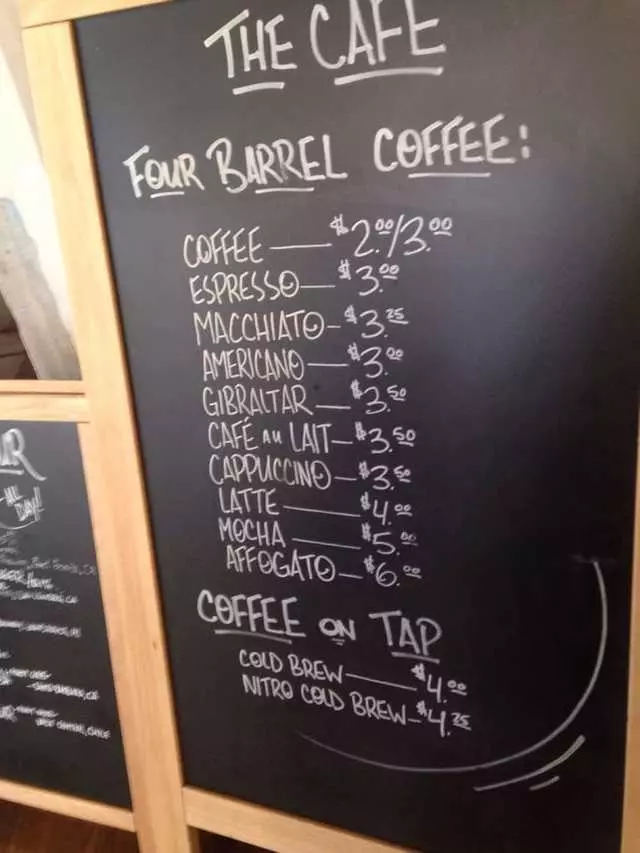 THE CAFE
FOUR BARREL COFFEE:
COFFEE — $2.00/3.00
ESPRESSO — $3.00
MACCHIATO - $3.25
AMERICANO — $3.00
GIBRALTAR — $3.50
CAFÉ AU LAIT - $3.50
CAPPUCCINO — $3.50
LATTE — $4.00
MOCHA — $5.00
AFFOGATO — $6.00
COFFEE ON TAP
COLD BREW — $4.00
NITRO COLD BREW - $4.25
ALL
DAY!